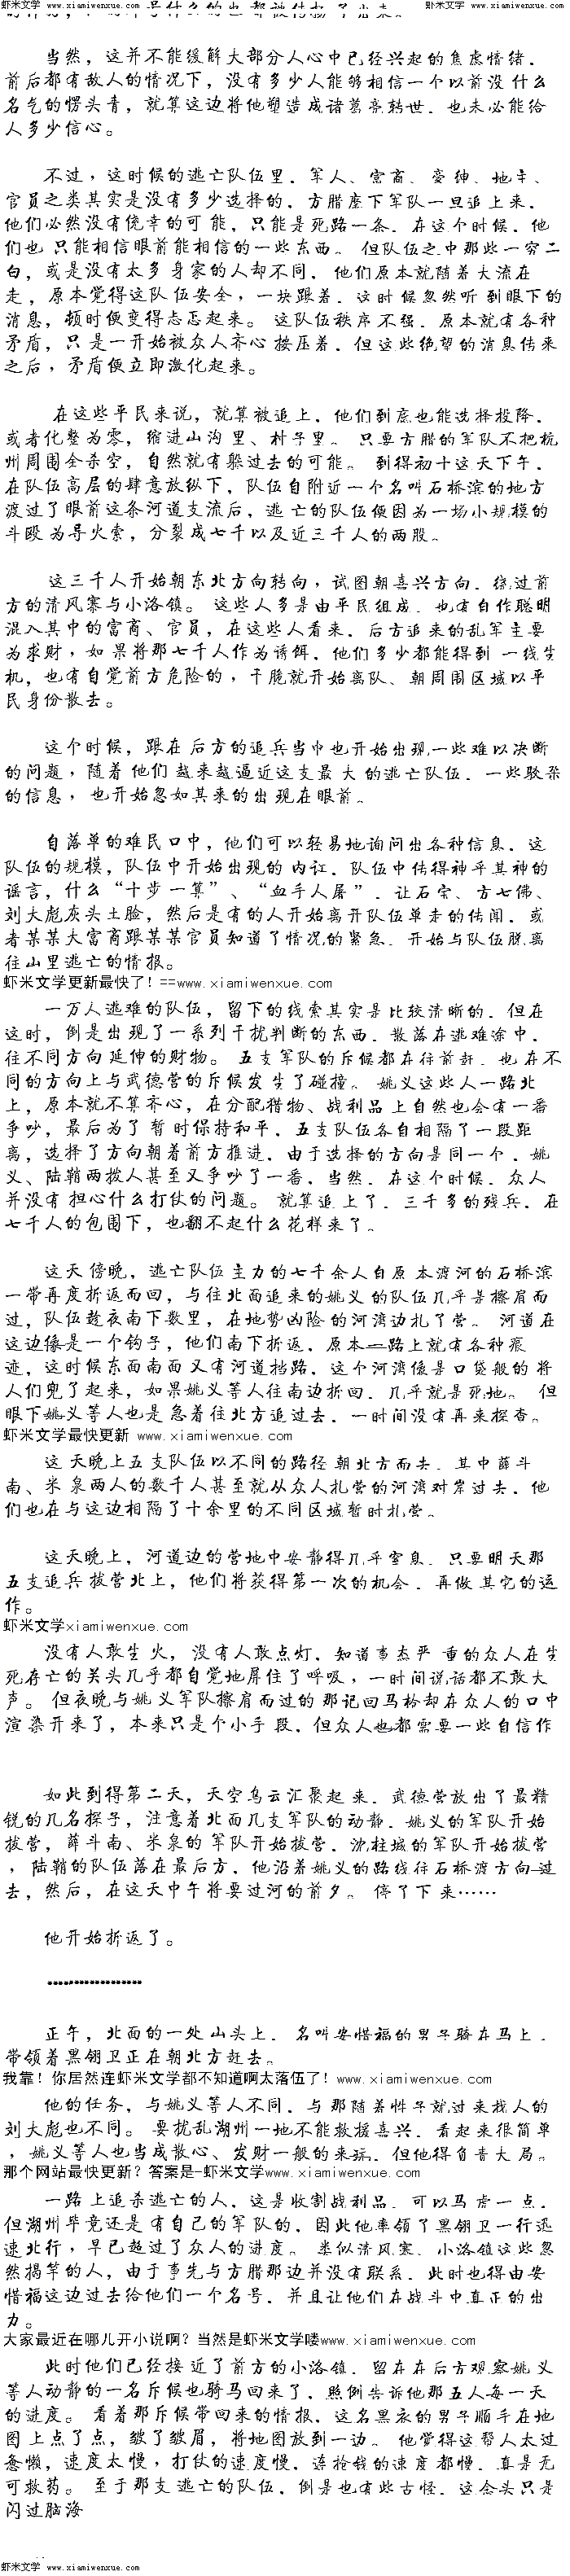 虾米文学 www.xiamiwenxue.com 虾米文学 www.xiamiwenxue.com
当然，这并不能缓解大部分人心中已经兴起的焦虑情绪。
前后都有敌人的情况下，没有多少人能够相信一个以前没什么
名气的愣头青，就算这边将他塑造成诸葛亮转世，也未必能给
人多少信心。
不过，这时候的逃亡队伍里，军人、富商、豪绅、地主、
官员之类其实是没有多少选择的，方腊麾下军队一旦追上来，
他们必然没有侥幸的可能，只能是死路一条，在这个时候，他
们也只能相信眼前能相信的一些东西。但队伍之中那些一穷二
白，或是没有太多身家的人却不同，他们原本就随着大流在
走，原本觉得这队伍安全，一块跟着，这时候忽然听到眼下的
消息，顿时便变得忐忑起来。这队伍秩序不强，原本就有各种
矛盾，只是一开始被众人齐心按压着，但这些绝望的消息传来
之后，矛盾便立即激化起来。
在这些平民来说，就算被追上，他们到底也能选择投降，
或者化整为零，缩进山沟里、村子里。只要方腊的军队不把杭
州周围全杀空，自然就有躲过去的可能。到得初十这天下午，
在队伍高层的肆意放纵下，队伍自附近一个名叫石桥滨的地方
渡过了眼前这条河道支流后，逃亡的队伍便因为一场小规模的
斗殴为导火索，分裂成七千以及近三千人的两股。
这三千人开始朝东北方向转向，试图朝嘉兴方向，绕过前
方的清风寨与小洛镇。这些人多是由平民组成，也有自作聪明
混入其中的富商、官员，在这些人看来，后方追来的乱军主要
为求财，如果将那七千人作为诱饵，他们多少都能得到一线生
机，也有自觉前方危险的，干脆就开始离队、朝周围区域以平
民身份散去。
这个时候，跟在后方的追兵当中也开始出现一些难以决断
的问题，随着他们越来越逼近这支最大的逃亡队伍，一些驳杂
的信息，也开始忽如其来的出现在眼前。
自落单的难民口中，他们可以轻易地询问出各种信息，这
队伍的规模，队伍中开始出现的内讧，队伍中传得神乎其神的
谣言，什么“十步一算”、“血手人屠”，让石宝、方七佛、
刘大彪灰头土脸，然后是有的人开始离开队伍单走的传闻，或
者某某大富商跟某某官员知道了情况的紧急，开始与队伍脱离
往山里逃亡的情报。
虾米文学更新最快了！==www.xiamiwenxue.com
一万人逃难的队伍，留下的线索其实是比较清晰的，但在
这时，倒是出现了一系列干扰判断的东西，散落在逃难途中，
往不同方向延伸的财物。五支军队的斥候都在往前赶，也在不
同的方向上与武德营的斥候发生了碰撞。姚义这些人一路北
上，原本就不算齐心，在分配猎物、战利品上自然也会有一番
争吵，最后为了暂时保持和平，五支队伍各自相隔了一段距
离，选择了方向朝着前方推进，由于选择的方向是同一个，姚
义、陆鞘两拨人甚至又争吵了一番，当然，在这个时候，众人
并没有担心什么打仗的问题。就算追上了，三千多的残兵，在
七千人的包围下，也翻不起什么花样来了。
这天傍晚，逃亡队伍主力的七千余人自原本渡河的石桥滨
一带再度折返而回，与往北面追来的姚义的队伍几乎是擦肩而
过，队伍趁夜南下数里，在地势凶险的河湾边扎了营。河道在
这边像是一个钩子，他们南下折返，原本一路上就有各种痕
迹，这时候东面南面又有河道挡路，这个河湾像是口袋般的将
人们兜了起来，如果姚义等人往南边折回，几乎就是死地。但
眼下姚义等人也是急着往北方追过去，一时间没有再来探查。
虾米文学最快更新 www.xiamiwenxue.com
这天晚上五支队伍以不同的路径朝北方而去，其中薛斗
南、米泉两人的数千人甚至就从众人扎营的河湾对岸过去，他
们也在与这边相隔了十余里的不同区域暂时扎营。
这天晚上，河道边的营地中安静得几乎窒息，只要明天那
五支追兵拔营北上，他们将获得第一次的机会，再做其它的运
作。
虾米文学xiamiwenxue.com
没有人敢生火，没有人敢点灯，知道事态严重的众人在生
死存亡的关头几乎都自觉地屏住了呼吸，一时间说话都不敢大
声。但夜晚与姚义军队擦肩而过的那记回马枪却在众人的口中
渲染开来了，本来只是个小手段，但众人也都需要一些自信作
如此到得第二天，天空乌云汇聚起来，武德营放出了最精
锐的几名探子，注意着北面几支军队的动静，姚义的军队开始
拔营，薛斗南、米泉的军队开始拔营，沈柱城的军队开始拔营
，陆鞘的队伍落在最后方，他沿着姚义的路线往石桥渡方向过
去，然后，在这天中午将要过河的前夕。停了下来……
他开始折返了。
••••••••••••••••••
正午，北面的一处山头上，名叫安惜福的男子骑在马上，
带领着黑翎卫正在朝北方赶去。
我靠！你居然连虾米文学都不知道啊太落伍了！www.xiamiwenxue.com
他的任务，与姚义等人不同，与那随着性子就过来找人的
刘大彪也不同。要扰乱湖州一地不能救援嘉兴，看起来很简单
，姚义等人也当成散心、发财一般的来玩，但他得负责大局。
那个网站最快更新？答案是-虾米文学www.xiamiwenxue.com
一路上追杀逃亡的人，这是收割战利品，可以马虎一点，
但湖州毕竟还是有自己的军队的，因此他率领了黑翎卫一行迅
速北行，早已越过了众人的进度。类似清风寨、小洛镇这些忽
然揭竿的人，由于事先与方腊那边并没有联系，此时也得由安
惜福这边过去给他们一个名号，并且让他们在战斗中真正的出
力。
大家最近在哪儿开小说啊？当然是虾米文学喽www.xiamiwenxue.com
此时他们已经接近了前方的小洛镇，留存在后方观察姚义
等人动静的一名斥候也骑马回来了，照例告诉他那五人每一天
的进度。看着那斥候带回来的情报，这名黑衣的男子顺手在地
图上点了点，皱了皱眉，将地图放到一边。他觉得这帮人太过
惫懒，速度太慢，打仗的速度慢，连抢钱的速度都慢，真是无
可救药。至于那支逃亡的队伍，倒是也有些古怪，这念头只是
闪过脑海
虾米文学 www.xiamiwenxue.com